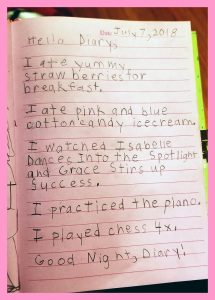 Date: July 7, 2018
Hello Diary,
I ate yummy
strawberries for
breakfast.
I ate pink and blue
cotton candy icecream.
I watched Isabelle
Dances Into the Spotlight
and Grace Stirs up
Success.
I practiced the piano.
I played chess 4x.
Good Night, Diary!